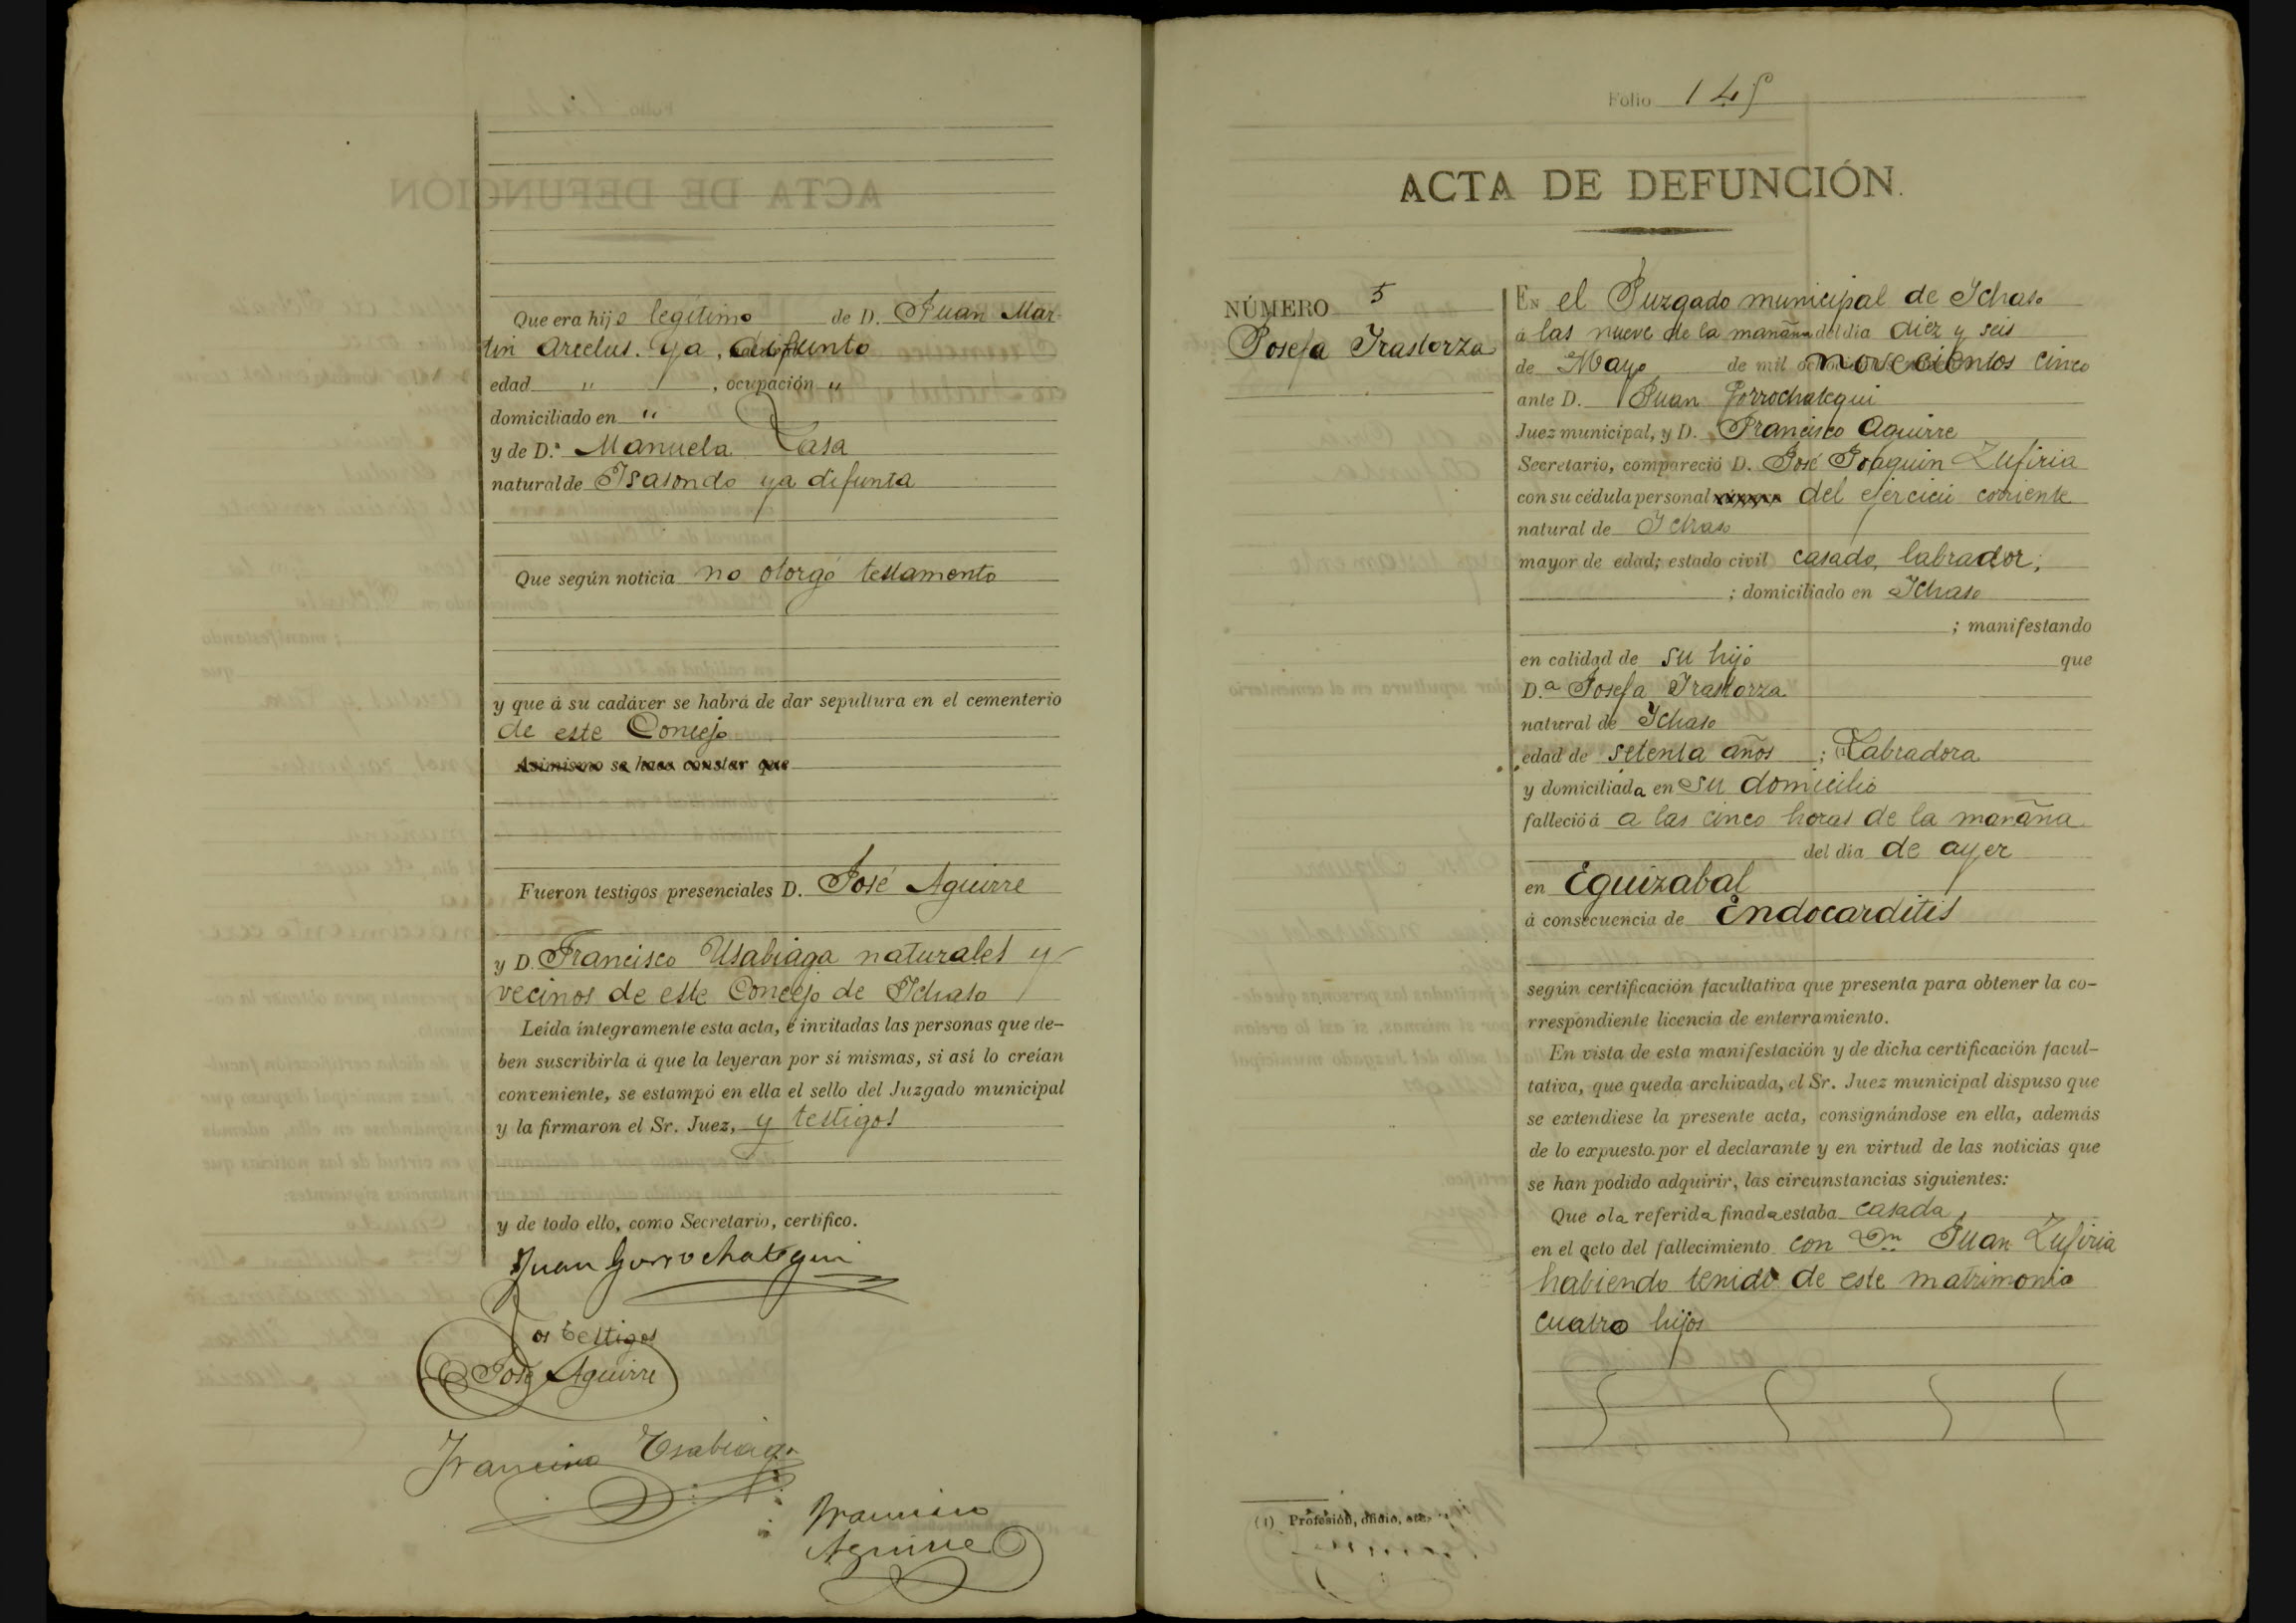 Que era hijo legítimo de D. Juan Mar-
tin Areclus. ya, difunto
edad " , ocupación "
domiciliado en "
y de D.ª Manuela Lasa
natural de Isasondo ya difunta
Que según noticia no otorgó testamento
y que á su cadáver se habrá de dar sepultura en el cementerio
de este Concejo
Asimismo se hace constar que
Fueron testigos presenciales D. José Aguirre
y D. Francisco Usabiaga naturales y
vecinos de este Concejo de Ichaso
Leída íntegramente esta acta, é invitadas las personas que de-
ben suscribirla á que la leyeran por sí mismas, si así lo creían
conveniente, se estampó en ella el sello del Juzgado municipal
y la firmaron el Sr. Juez, y testigos
y de todo ello, como Secretario, certifico.
Juan Gorrochategui
Los testigos
José Aguirre
Francisco Usabiaga
Francisco
Aguirre
Folio 145
ACTA DE DEFUNCIÓN.
NÚMERO 5
Josefa Irastorza
En el Juzgado municipal de Ichaso
á las nueve de la mañana del día diez y seis
de Mayo de mil novecientos cinco
ante D. Juan Gorrochategui
Juez municipal, y D. Francisco Aguirre
Secretario, compareció D. José Joaquin Zufiria
con su cédula personal del ejercicio corriente
natural de Ichaso
mayor de edad; estado civil casado, labrador;
; domiciliado en Ichaso
; manifestando
en calidad de su hijo que
D.ª Josefa Irastorza
natural de Ichaso
edad de setenta años ; (1) Labradora
y domiciliada en su domicilio
falleció á a las cinco horas de la mañana
del día de ayer
en Eguizabal
á consecuencia de Endocarditis
según certificación facultativa que presenta para obtener la co-
rrespondiente licencia de enterramiento.
En vista de esta manifestación y de dicha certificación facul-
tativa, que queda archivada, el Sr. Juez municipal dispuso que
se extendiese la presente acta, consignándose en ella, además
de lo expuesto por el declarante y en virtud de las noticias que
se han podido adquirir, las circunstancias siguientes:
Que la referida finada estaba casada
en el acto del fallecimiento con Dn Juan Zufiria
habiendo tenido de este matrimonio
cuatro hijos
(1) Profesión, oficio, etc.